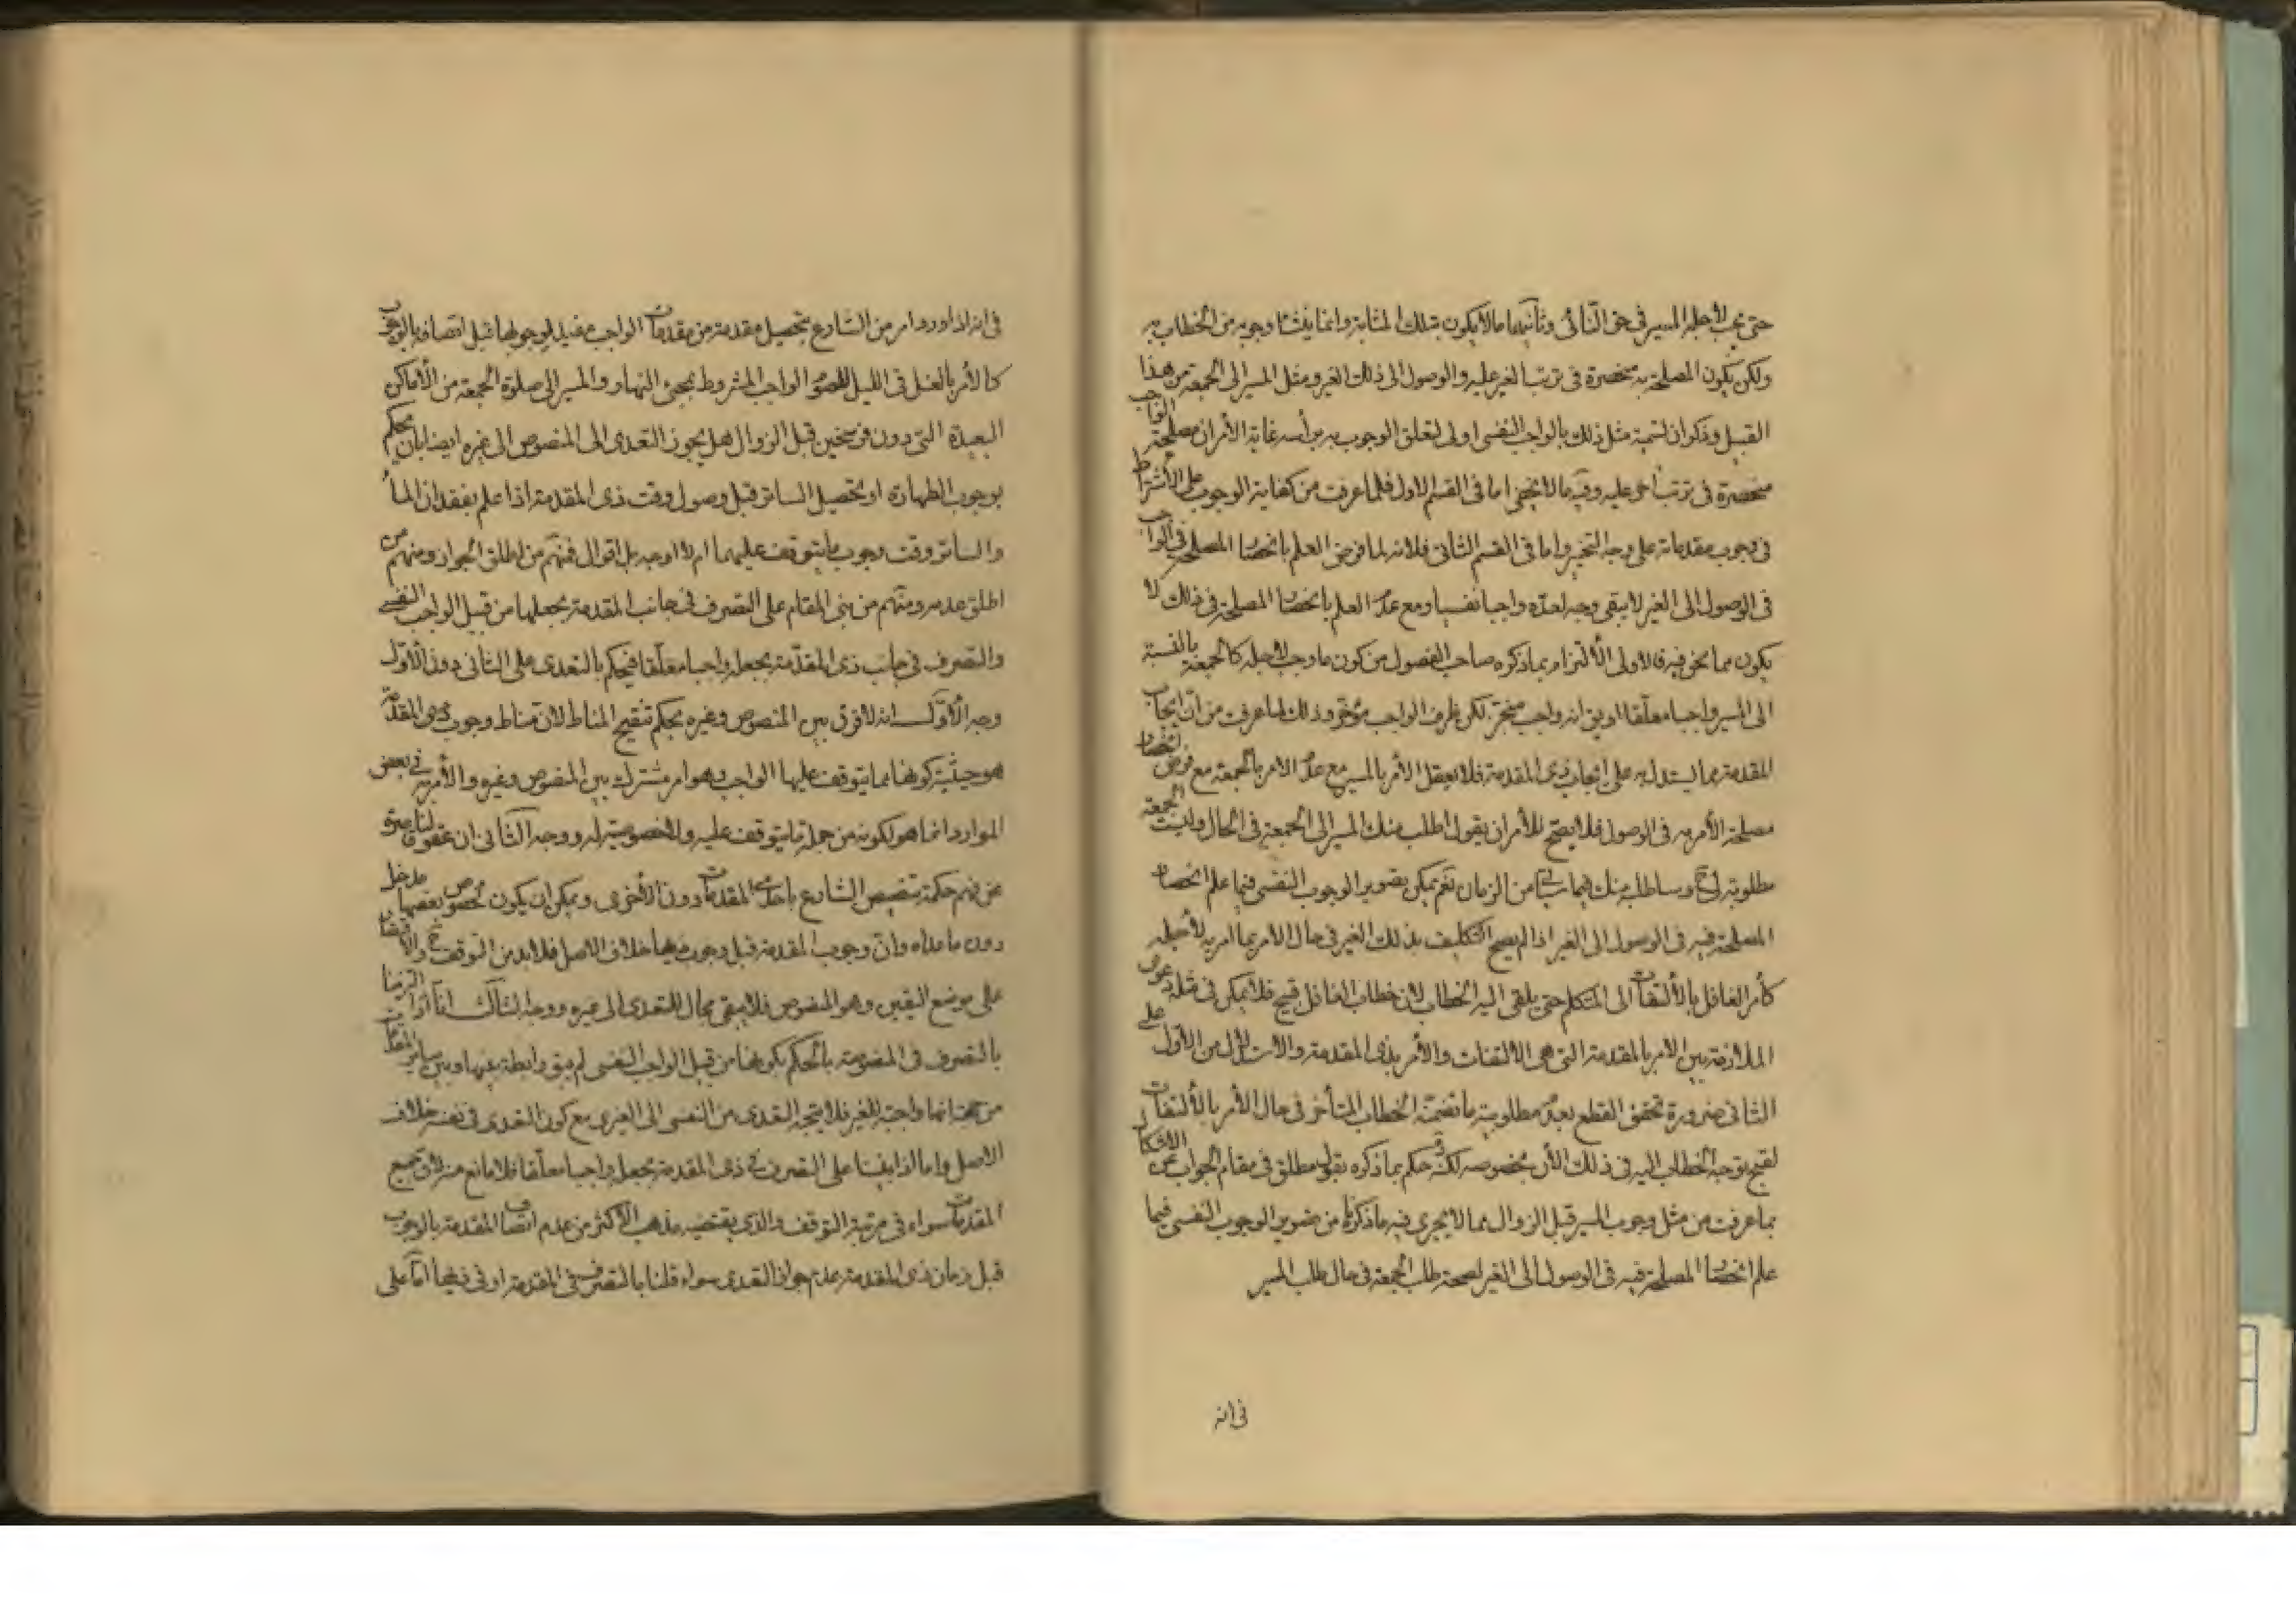 حتى يجب لأجله المسير في حق النائى وثانيهما مالا يكون بتلك المثابة وانما ينشأ وجوبه من الخطاب به
ولكن يكون المصلحة به منحصرة في ترتب الغير عليه والوصول الى ذلك الغير ومثل المسير الى الجمعة من هذا
القبيل وذكر ان تسمية مثل ذلك بالواجب النفسى اولى لتعلق الوجوب به برأسه غاية الأمر ان مصلحة الواجب
منحصرة في ترتب امر عليه وفيه مالا يخفى اما في القسم الاول فلما عرفت من كفاية الوجوب على الاشتراط
في وجوب مقدماته على وجه التخيير واما في القسم الثانى فلانه لما فرض العلم بانحصار المصلحة في الواجب
في الوصول الى الغير لا يبقى وجه لعدّه واجبا نفسيا ومع عدم العلم بانحصار المصلحة في ذلك لا
يكون مما نحن فيه فالاولى الالتزام بما ذكره صاحب الفصول من كون ما وجب لأجله كالجمعة بالنسبة
الى المسير واجبا معلّقا او بين انه واجب منجز لكن ظرف الواجب مؤخّر وذلك لما عرفت من ان ايجاب
المقدمة مما يستدل به على ايجاب ذى المقدمة فلا يعقل الأمر بالمسير مع عدم الامر بالجمعة مع فرض انحصار
مصلحة الأمر به في الوصول فلا يصح للأمر ان يقول اطلب منك المسير الى الجمعة في الحال وليست الجمعة
مطلوبة لى ح وساطلب منك فيما سيأتى من الزمان نعم يمكن تصوير الوجوب النفسى فيما علم انحصار
المصلحة فيه في الوصول الى الغير اذا لم يصح التكليف بذلك الغير في حال الامر بما امر به لأجله
كأمر الغافل بالالتفات الى المتكلم حتى يلقى اليه الخطاب لان خطاب الغافل قبيح فلا يمكن في مثله دعوى
الملازمة بين الامر بالمقدمة التى هى الالتفات والأمر بذى المقدمة والاستدلال من الأول على
الثانى ضرورة تحقق القطع بعدم مطلوبية ما تضمنه الخطاب المتأخر في حال الأمر بالالتفات
لقبح توجه الخطاب اليه في ذلك الأن بخصوصه لكنّه حكم بما ذكره بقول مطلق في مقام الجواب عن الاشكال
بما عرفت من مثل وجوب المسير قبل الزوال مما لا يجرى فيه ما ذكرنا من تصوير الوجوب النفسى فيما
علم انحصار المصلحة فيه في الوصول الى الغير لصحة طلب الجمعة في حال طلب المسير
في انه
في انه اذا ورد امر من الشارع بتحصيل مقدمة من مقدمات الواجب مفيد لوجوبها قبل اتصافه بالوجوب
كالأمر بالغسل في الليل للصوم الواجب المشروط بمجئ النهار والمسير الى صلوة الجمعة من الأماكن
البعيدة التى دون فرسخين قبل الزوال هل يجوز التعدى الى المنصوص الى غيره ايضا بان يحكم
بوجوب الطهارة او تحصيل الساتر قبل وصول وقت ذى المقدمة اذا علم بفقدان الماء
والساتر وقت وجوب ما يتوقف عليهما ام لا اوجه بل اقوال فمنهم من اطلق الجواز ومنهم من
اطلق عدمه ومنهم من بنى المقام على التصرف في جانب المقدمة بجعلها من قبيل الواجب النفسى
والتصرف في جانب ذى المقدّمة بجعله واجبا معلّقا فيحكم بالتعدى على الثانى دون الأوّل
وجه الأوّل انه لا فرق بين المنصوص وغيره بحكم تنقيح المناط لان مناط وجوب ذى المقدمة
هو حيثية كونها مما يتوقف عليها الواجب وهو امر مشترك بين المنصوص وغيره والأمر به في بعض
الموارد انما هو لكونه من جملة ما يتوقف عليه ولا خصوصية له ووجه الثانى ان عقولنا قاصرة
عن فهم حكمة تنصيص الشارع باحدى المقدمات دون الأخرى ويمكن ان يكون لخصوص بعضها مدخل
دون ما عداه وان وجوب المقدمة قبل وجوب ذيها خلاف الاصل فلا بد من التوقف ح والاقتصار
على موضع اليقين وهو المنصوص فلا يبقى مجال للتعدى الى غيره ووجه الثالث انا اذا التزمنا
بالتصرف في المقدمة بالحكم بكونها من قبيل الواجب النفسى لم يبق رابطة بينها وبين سائر المقدمات
من جهة انها واجبة للغير فلا يتجه التعدى من النفسى الى الغيرى مع كون التعدى في نفسه خلاف
الاصل واما اذا بنينا على التصرف في ذى المقدمة بجعله واجبا معلّقا فلا مانع منه لان جميع
المقدمات سواء في مرتبة التوقف والذى يقتضيه مذهب الأكثر من عدم اتصاف المقدمة بالوجوب
قبل زمان ذى المقدمة عدم جواز التعدى سواء قلنا بالتصرف في المقدمة او في ذيها اما على